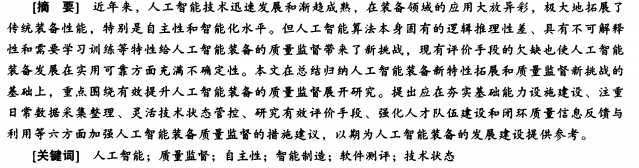 [摘　要]　近年来，人工智能技术迅速发展和渐趋成熟，在装备领域的应用大放异彩，极大地拓展了
传统装备性能，特别是自主性和智能化水平。但人工智能算法本身固有的逻辑推理性差、具有不可解释
性和需要学习训练等特性给人工智能装备的质量监督带来了新挑战，现有评价手段的欠缺也使人工智能
装备发展在实用可靠方面充满不确定性。本文在总结归纳人工智能装备新特性拓展和质量监督新挑战的
基础上，重点围绕有效提升人工智能装备的质量监督展开研究。提出应在夯实基础能力设施建设、注重
日常数据采集整理、灵活技术状态管控、研究有效评价手段、强化人才队伍建设和闭环质量信息反馈与
利用等六方面加强人工智能装备质量监督的措施建议，以期为人工智能装备的发展建设提供参考。
[关键词]　人工智能；质量监督；自主性；智能制造；软件测评；技术状态